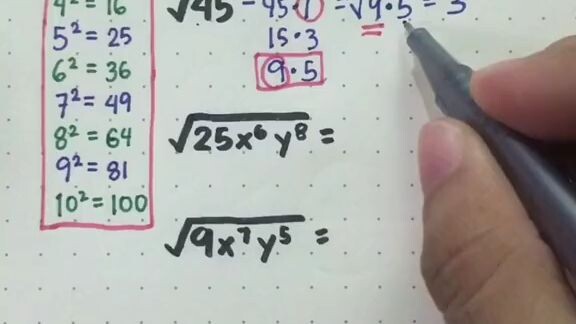 4² = 16
5² = 25
6² = 36
7² = 49
8² = 64
9² = 81
10² = 100
√45 - 45·1 = √9·5 = 3
15·3
9·5
√25x⁶y⁸ =
√9x⁷y⁵ =